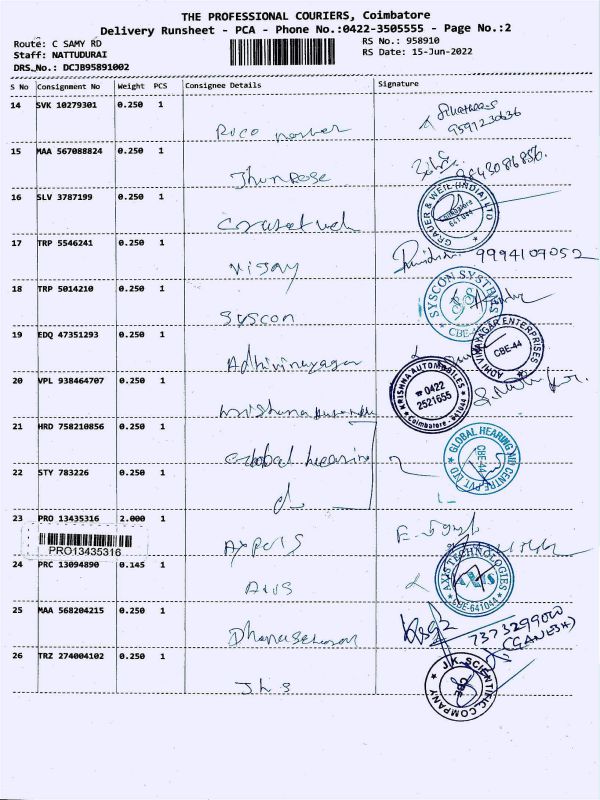 THE PROFESSIONAL COURIERS, Coimbatore
Delivery Runsheet - PCA - Phone No.:0422-3505555 - Page No.:2
Route: C SAMY RD
Staff: NATTUDURAI
DRS.No.: DCJB95891002
RS No.: 958910
RS Date: 15-Jun-2022
S No Consignment No Weight PCS Consignee Details Signature
14 SVK 10279301 0.250 1
9591230636
15 MAA 567088824 0.250 1
9843086856.
16 SLV 3787199 0.250 1
GRAUER & WEIL (INDIA) LTD
Coimbatore
641044
17 TRP 5546241 0.250 1
Vijay
9994109052
18 TRP 5014210 0.250 1
Syscon
SYSCON SYSTEMS
CBE-44
19 EDQ 47351293 0.250 1
Adhivinayagar
ADHI VINAYAGAR ENTERPRISES
CBE-44
20 VPL 938464707 0.250 1
Krishna
KRISHNA AUTOMOBILES
☎ 0422
2521655
Coimbatore - 641044
21 HRD 758210856 0.250 1
Global hearing
GLOBAL HEARING AID CENTRE PVT LTD
CBE-44
22 STY 783226 0.250 1
23 PRO 13435316 2.000 1
PRO13435316
24 PRC 13094890 0.145 1
Axis
AXIS TECHNOLOGIES
AXIS
CBE-641044
25 MAA 568204215 0.250 1
Dhanasekaran
7373299000
(GANESH)
26 TRZ 274004102 0.250 1
J.K. SCIENTIFIC COMPANY
CBE